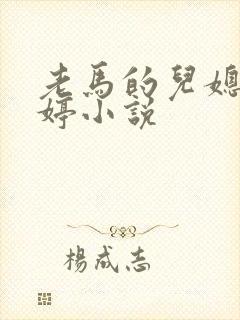 老馬的兒媳
婷小說
楊成志